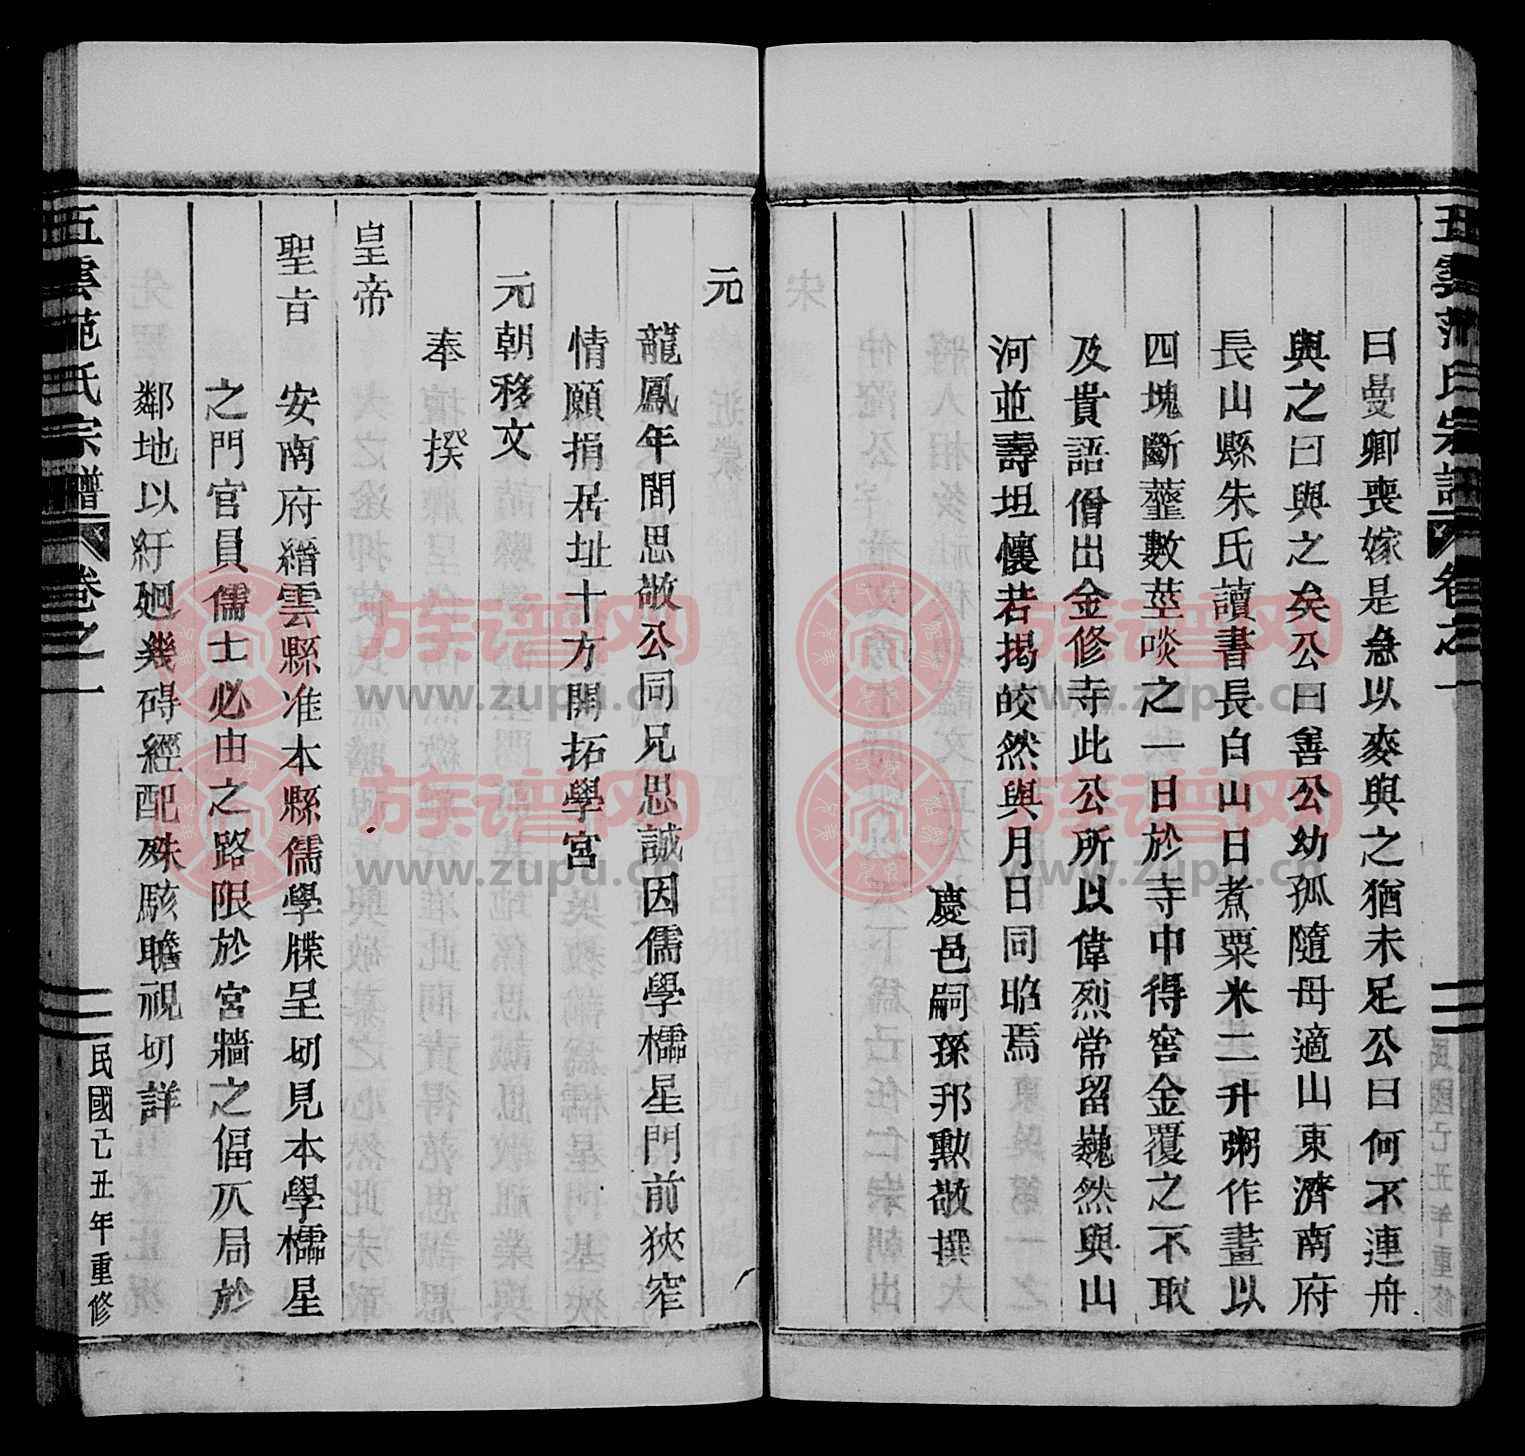 五雲范氏宗譜 卷之一
曰曼卿喪嫁是急以麥與之猶未足公曰何不連舟
與之曰與之矣公曰善公幼孤隨母適山東濟南府
長山縣朱氏讀書長白山日煮粟米二升粥作畫以
四塊斷虀數莖啖之一日於寺中得窖金覆之不取
及貴語僧出金修寺此公所以偉烈常留巍然與山
河並壽坦懷若揭皎然與月日同昭焉
慶邑嗣孫邦勲敬撰
元
龍鳳年間思敬公同兄思誠因儒學櫺星門前狹窄
情願捐居址十方開拓學宮
元朝移文
奉揆
皇帝
聖旨 安南府縉雲縣准本縣儒學牒呈切見本學櫺星
之門官員儒士必由之路限於宮牆之偪仄局於
鄰地以紆廻幾碍經配殊駭瞻視切詳
五雲范氏宗譜 卷之一
民國己丑年重修
族谱网
www.zupu.cn
族谱网
www.zupu.cn
族谱网
www.zupu.cn
族谱网
www.zupu.cn